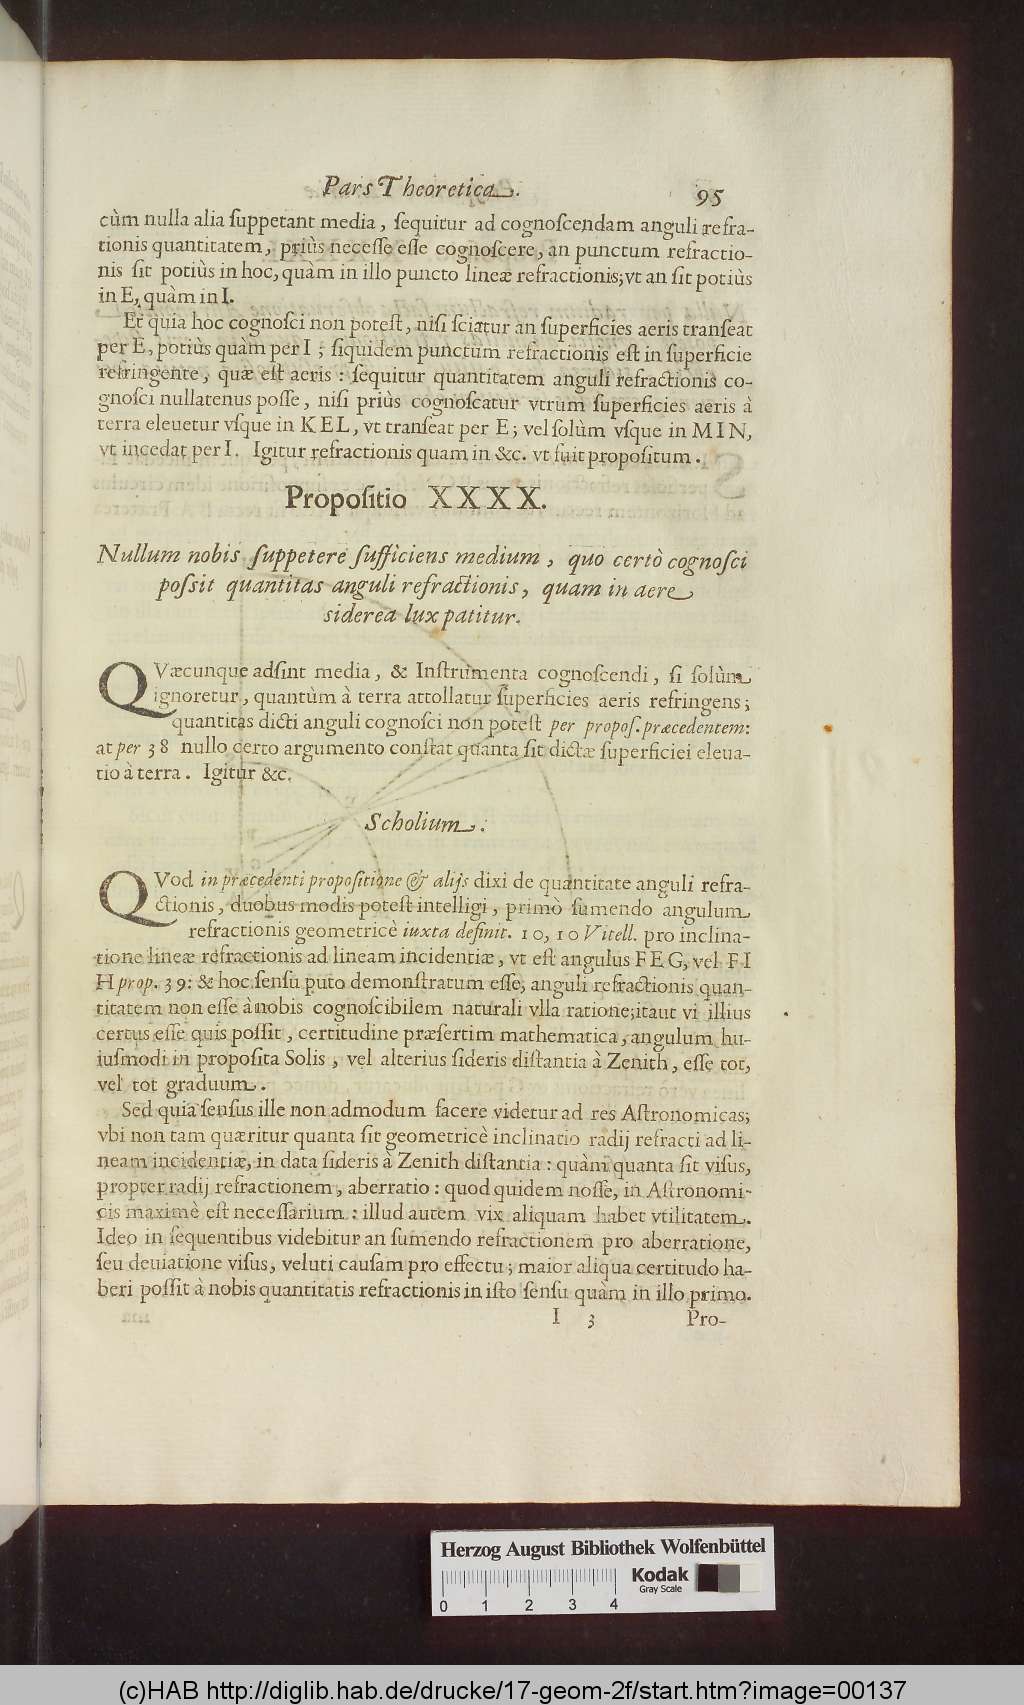 Pars Theoretica. 95
cùm nulla alia ſuppetant media, ſequitur ad cognoſcendam anguli refra-
ctionis quantitatem, priùs neceſſe eſſe cognoſcere, an punctum refractio-
nis ſit potiùs in hoc, quàm in illo puncto lineæ refractionis; vt an ſit potiùs
in E, quàm in I.
Et quia hoc cognoſci non poteſt, niſi ſciatur an ſuperficies aeris tranſeat
per E, potiùs quàm per I; ſiquidem punctum refractionis eſt in ſuperficie
refringente, quæ eſt aeris: ſequitur quantitatem anguli refractionis co-
gnoſci nullatenus poſſe, niſi priùs cognoſcatur vtrum ſuperficies aeris à
terra eleuetur vſque in KEL, vt tranſeat per E; vel ſolùm vſque in MIN,
vt incedat per I. Igitur refractionis quam in &c. vt fuit propoſitum.
Propoſitio XXXX.
Nullum nobis ſuppetere ſufficiens medium, quo certò cognoſci
poſsit quantitas anguli refractionis, quam in aere
siderea lux patitur.
QVæcunque adſint media, & Inſtrumenta cognoſcendi, ſi ſolùm
ignoretur, quantùm à terra attollatur ſuperficies aeris refringens;
quantitas dicti anguli cognoſci non poteſt per propoſ. præcedentem:
at per 38 nullo certo argumento conſtat quanta ſit dictæ ſuperficiei eleua-
tio à terra. Igitur &c.
Scholium.
QVod in præcedenti propoſitione & alijs dixi de quantitate anguli refra-
ctionis, duobus modis poteſt intelligi, primò ſumendo angulum
refractionis geometricè iuxta definit. 10, 10 Vitell. pro inclina-
tione lineæ refractionis ad lineam incidentiæ, vt eſt angulus FEG, vel FI
H prop. 39: & hoc ſenſu puto demonſtratum eſſe, anguli refractionis quan-
titatem non eſſe à nobis cognoſcibilem naturali vlla ratione; itaut vi illius
certus eſſe quis poſſit, certitudine præſertim mathematica, angulum hu-
iuſmodi in propoſita Solis, vel alterius ſideris diſtantia à Zenith, eſſe tot,
vel tot graduum.
Sed quia ſenſus ille non admodum facere videtur ad res Aſtronomicas;
vbi non tam quæritur quanta ſit geometricè inclinatio radij refracti ad li-
neam incidentiæ, in data ſideris à Zenith diſtantia: quàm quanta ſit viſus,
propter radij refractionem, aberratio: quod quidem noſſe, in Aſtronomi-
cis maximè eſt neceſſarium: illud autem vix aliquam habet vtilitatem.
Ideo in ſequentibus videbitur an ſumendo refractionem pro aberratione,
ſeu deuiatione viſus, veluti cauſam pro effectu; maior aliqua certitudo ha-
beri poſſit à nobis quantitatis refractionis in iſto ſenſu quàm in illo primo.
I 3 Pro-
Herzog August Bibliothek Wolfenbüttel
Kodak
Gray Scale
0 1 2 3 4
(c)HAB http://diglib.hab.de/drucke/17-geom-2f/start.htm?image=00137